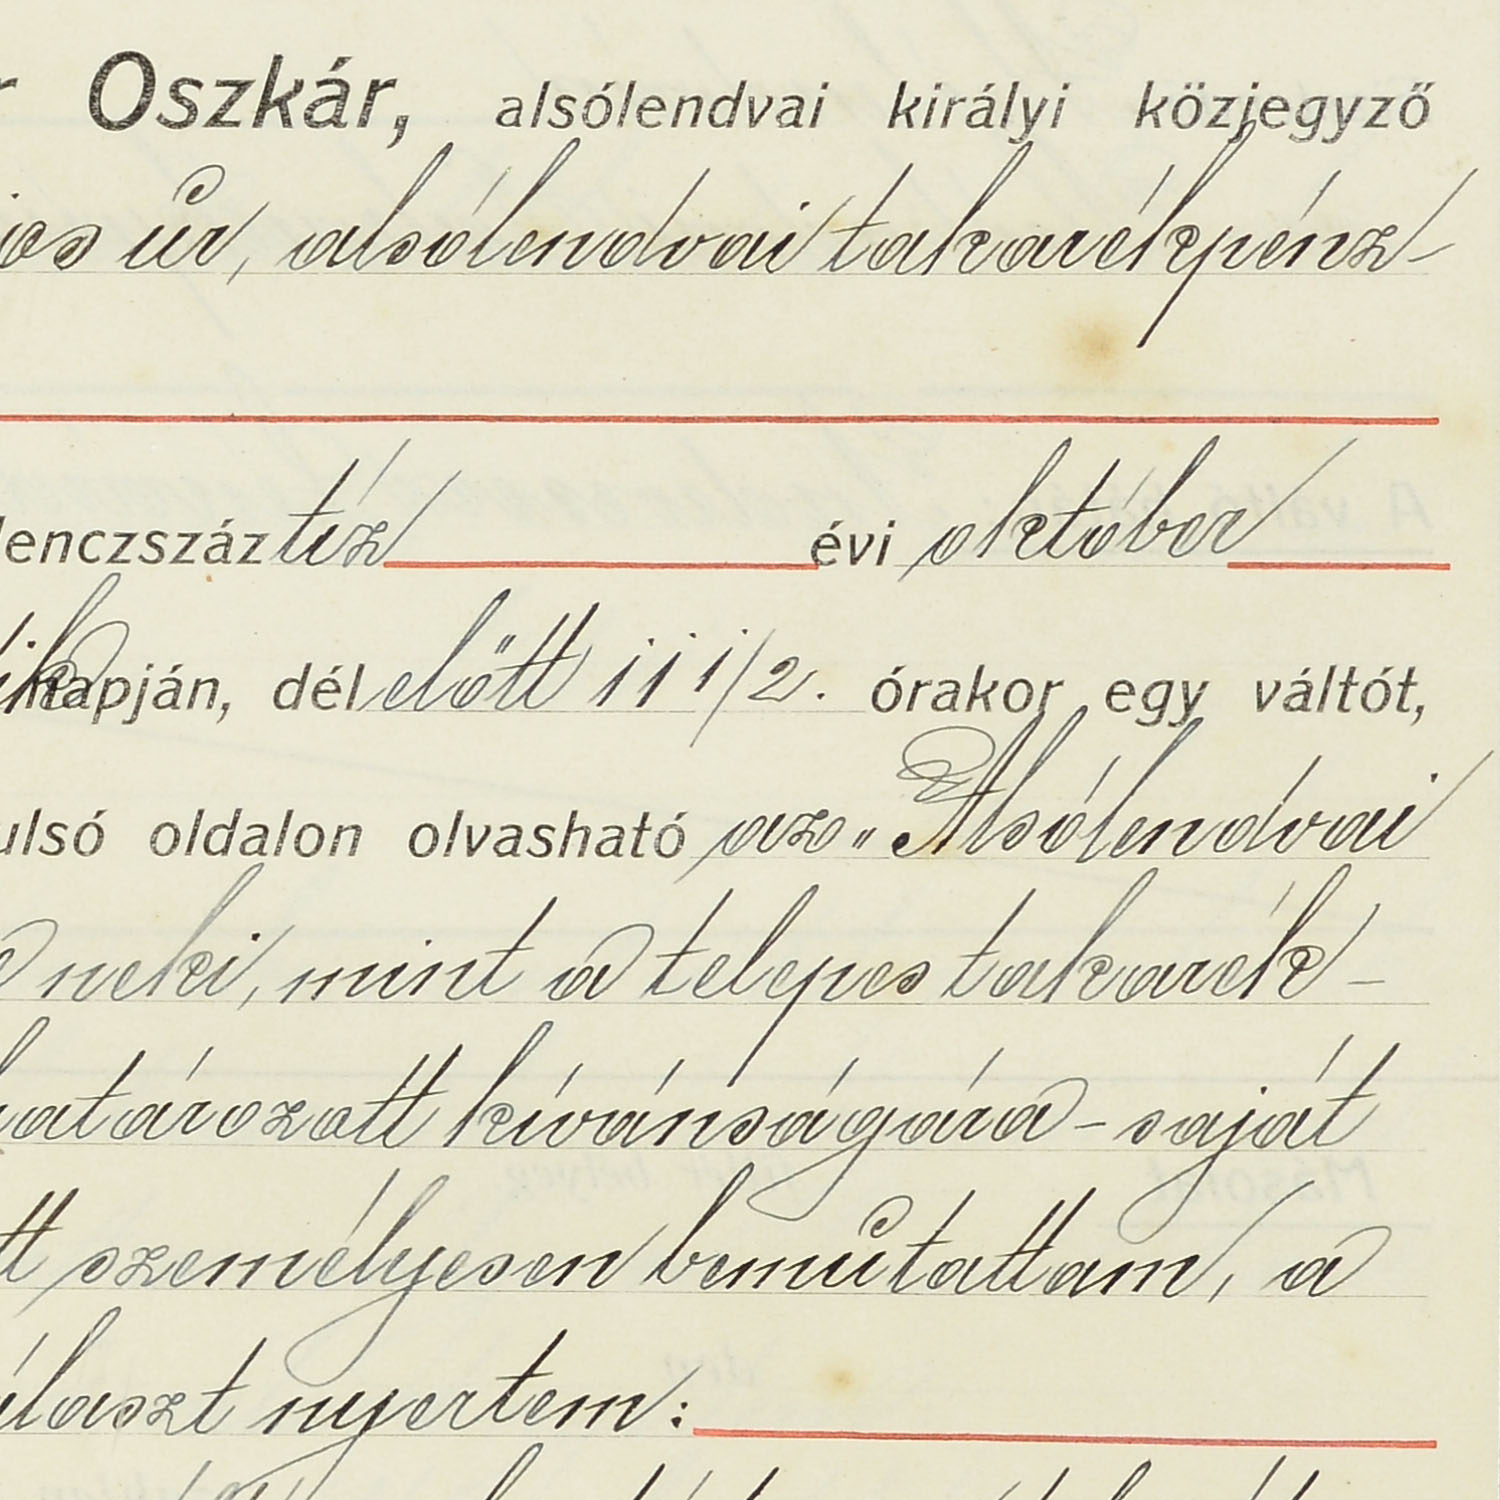 r Oszkár, alsólendvai királyi közjegyző
jos úr, alsólendvai takarékpénz-
lenczszáz tíz évi október
ik napján, dél előtt 11 1/2. órakor egy váltót,
ulsó oldalon olvasható az „Alsólendvai
a neki, mint a telepes takarék-
határozott kívánságára - saját
tt személyesen bemutattam, a
álaszt nyertem: